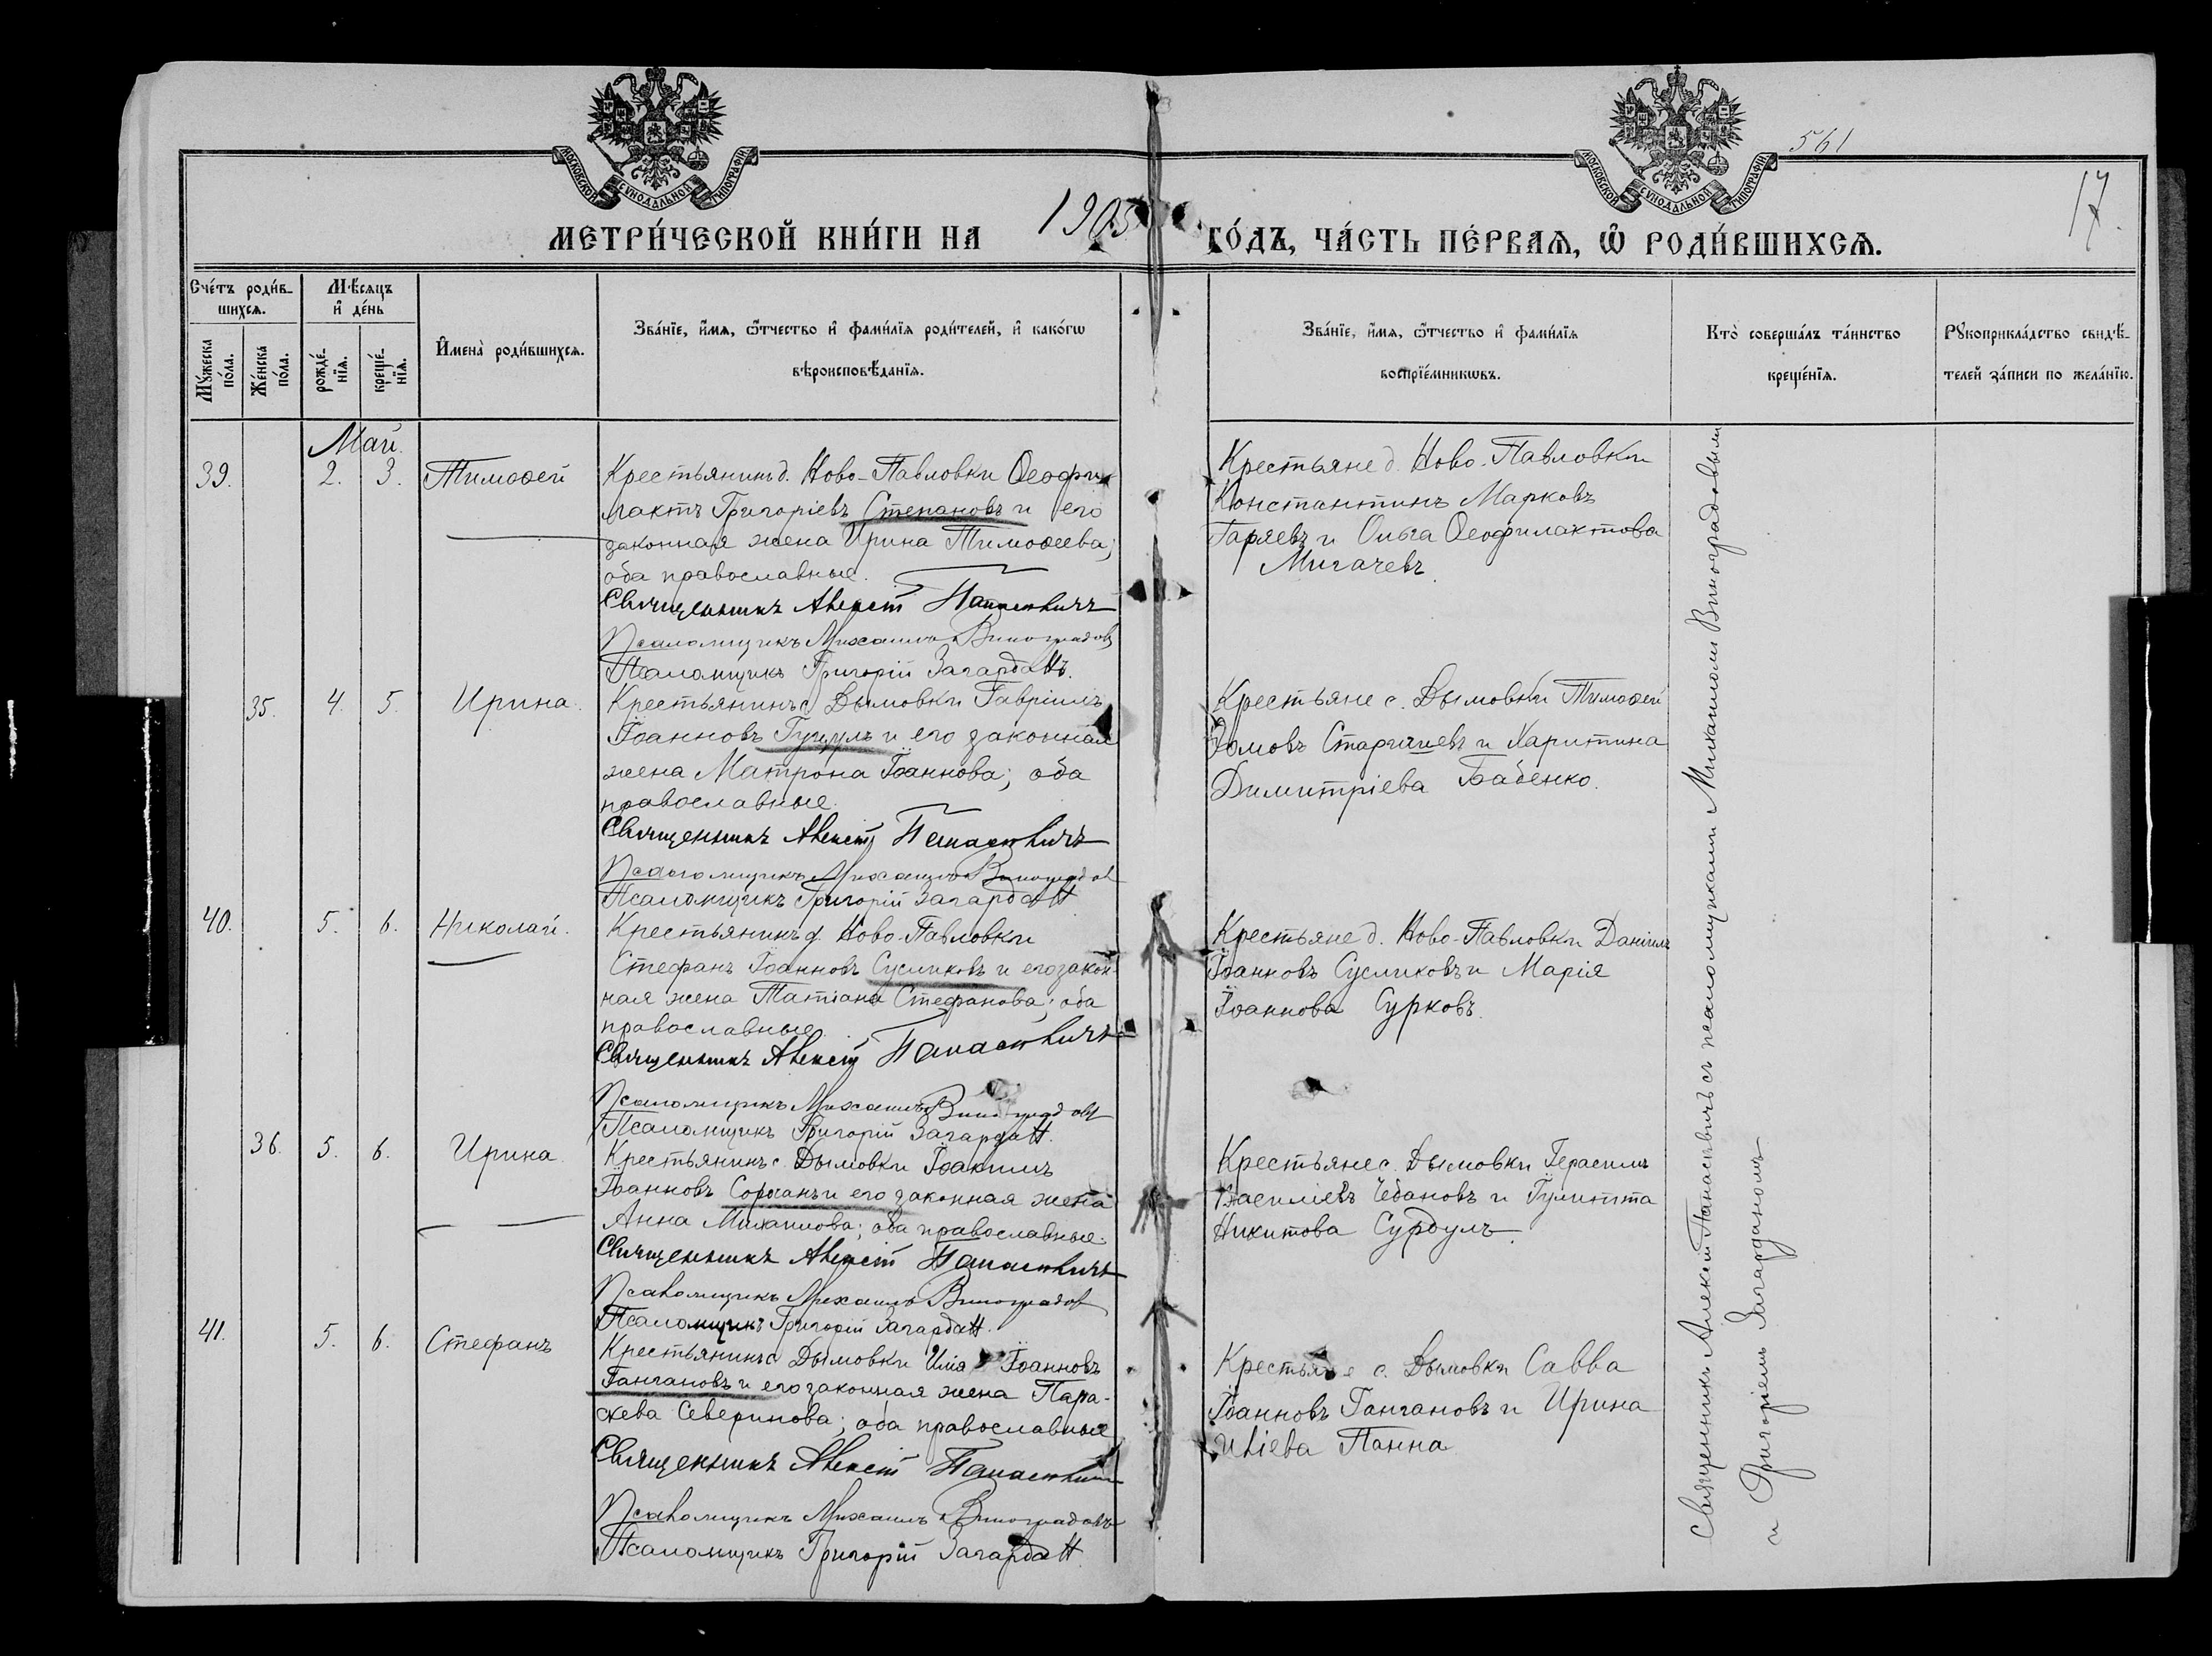 МОСКОВСКОЙ СѴНОДАЛЬНОЙ ТИПОГРАФІИ
МОСКОВСКОЙ СѴНОДАЛЬНОЙ ТИПОГРАФІИ
561
17.
МЕТРИ́ЧЕСКОЙ КНИ́ГИ НА 1905 ГО́ДЪ, ЧА́СТЬ ПЕ́РВАѦ, Ѡ҆ РОДИ́ВШИХСѦ.
Сче́тъ роди́в-
шихсѧ.
Мꙋ́жеска по́ла.
Же́нска по́ла.
Мѣ́сяцъ
и҆ де́нь
рожде́-
нїѧ.
креще́-
нїѧ.
И҆мена̀ роди́вшихсѧ.
Зва́нїе, и҆́мѧ, ѻ҆́тчество и҆ фами́лїѧ роди́телей, и҆ како́гѡ
вѣроисповѣ́данїѧ.
Зва́нїе, и҆́мѧ, ѻ҆́тчество и҆ фами́лїѧ
воспрїе́мникѡвъ.
Кто̀ соверша́лъ та́инство
креще́нїѧ.
Рꙋкоприкла́дство свидѣ́-
телей за́писи по жела́нїю.
Май.
39. 2. 3. Тимоѳей
Крестьянинъ д. Ново-Павловки Ѳеофи-
лактъ Григоріевъ Степановъ и его
законная жена Ирина Тимоѳеева;
оба православные.
Священникъ Алексій Панасевичъ
Псаломщикъ Михаилъ Виноградовъ
Псаломщикъ Григорій Загарданъ.
Крестьяне д. Ново-Павловки
Константинъ Марковъ
Гаряевъ и Ольга Ѳеофилактова
Мигачевъ.
35. 4. 5. Ирина.
Крестьянинъ с. Дымовки Гавріилъ
Іоанновъ Гуцулъ и его законная
жена Матрона Іоаннова; оба
православные.
Священникъ Алексій Панасевичъ
Псаломщикъ Михаилъ Виноградов
Псаломщикъ Григорій Загарданъ
Крестьяне с. Дымовки Тимоѳей
Старичиевъ и Харитина
Димитріева Бабенко.
40. 5. 6. Николай.
Крестьянинъ д. Ново-Павловки
Стефанъ Іоанновъ Сусликовъ и его закон-
ная жена Татіана Стефанова; оба
православные.
Священникъ Алексій Панасевичъ
Псаломщикъ Михаилъ Виноградовъ
Псаломщикъ Григорій Загарданъ.
Крестьяне д. Ново-Павловки Даніилъ
Іоанновъ Сусликовъ и Марія
Іоаннова Сурковъ.
36. 5. 6. Ирина
Крестьянинъ с. Дымовки Іоакимъ
Іоанновъ Сорочанъ и его законная жена
Анна Михаилова; оба православные.
Священникъ Алексій Панасевичъ
Псаломщикъ Михаилъ Виноградов
Псаломщикъ Григорій Загарданъ.
Крестьяне с. Дымовки Герасимъ
Василіевъ Чебановъ и Іулитта
Никитова Сурдулъ.
41. 5. 6. Стефанъ
Крестьянинъ с. Дымовки Илія Іоанновъ
Гангановъ и его законная жена Пара-
скева Северинова; оба православные
Священникъ Алексій Панасевичъ
Псаломщикъ Михаилъ Виноградовъ
Псаломщикъ Григорій Загарданъ
Крестьяне с. Дымовки Савва
Іоанновъ Гангановъ и Ирина
Иліева Панна
Священникъ Алексій Панасевичъ съ псаломщиками Михаиломъ Виноградовымъ
и Григоріемъ Загарданомъ